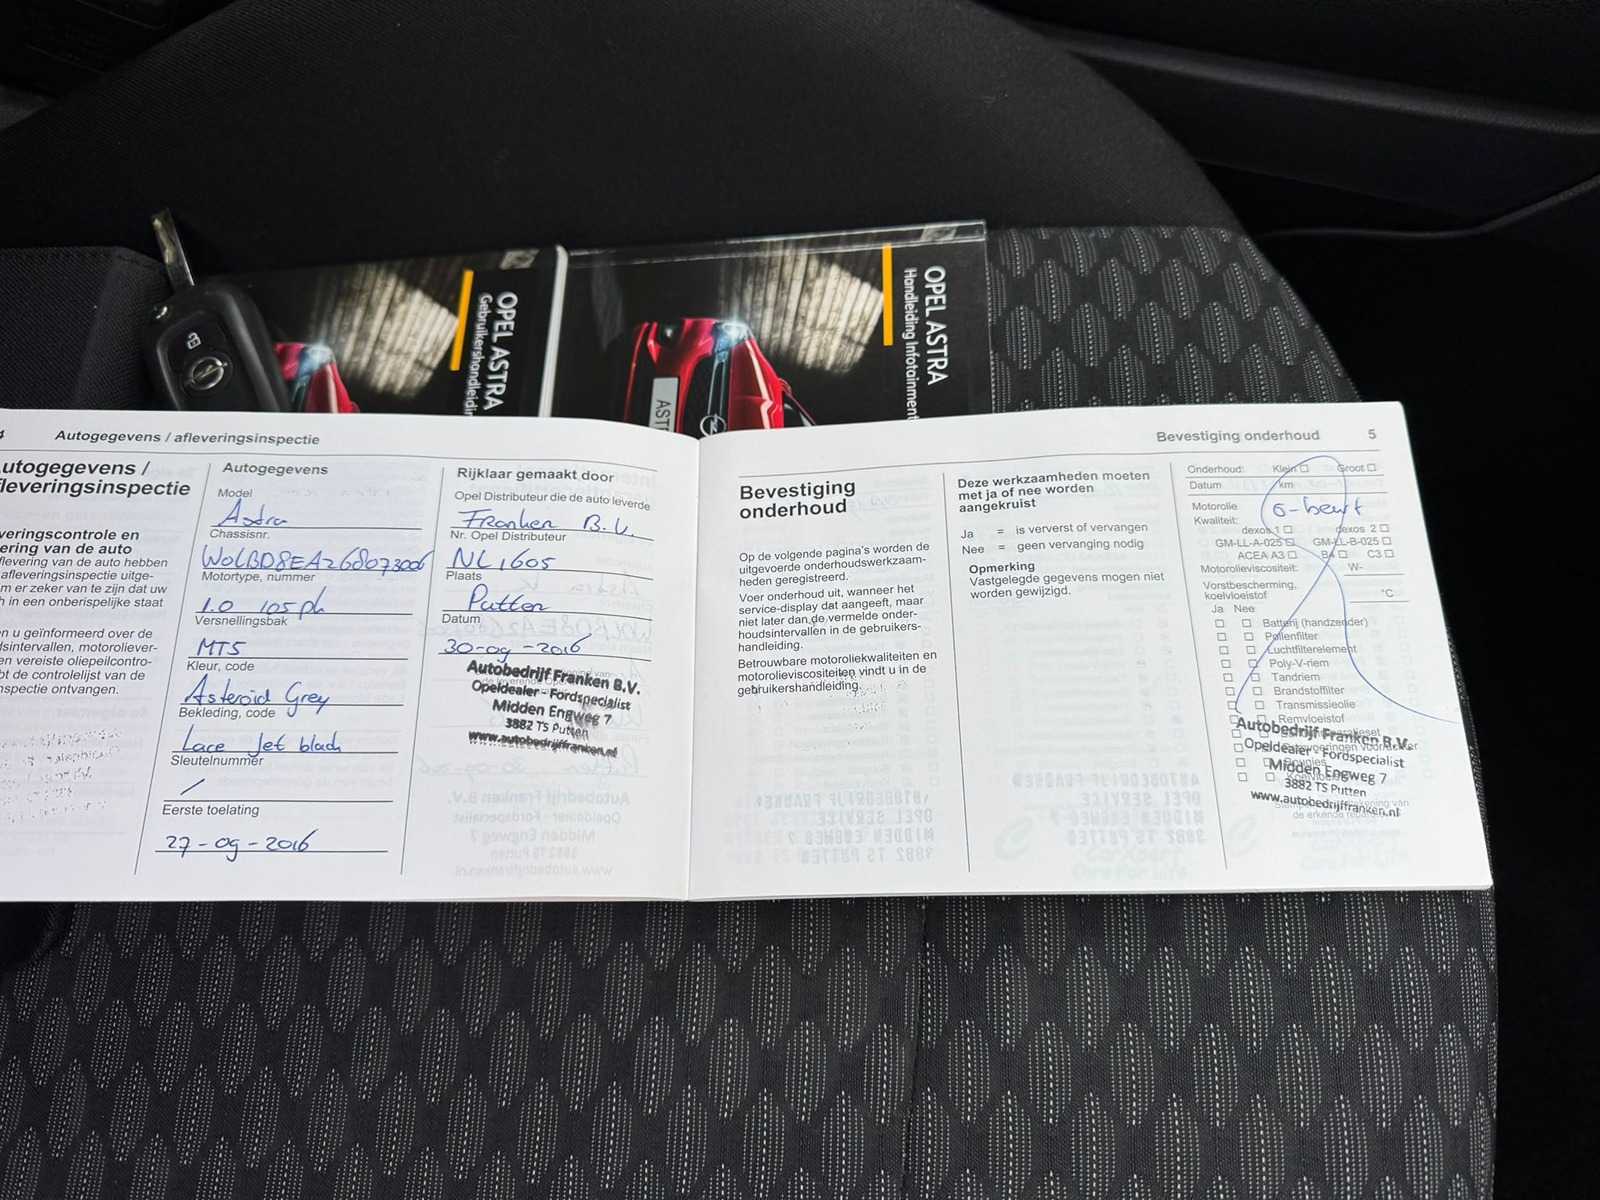 OPEL ASTRA
Gebruikershandleidin
OPEL ASTRA
Handleiding Infotainment
AST
4 Autogegevens / afleveringsinspectie
utogegevens /
fleveringsinspectie
veringscontrole en
ering van de auto
flevering van de auto hebben
afleveringsinspectie uitge-
m er zeker van te zijn dat uw
h in een onberispelijke staat
n u geïnformeerd over de
dsintervallen, motoroliever-
en vereiste oliepeilcontro-
bt de controlelijst van de
nspectie ontvangen.
Autogegevens
Model
Astra
Chassisnr.
W0LBD8EA2G8073006
Motortype, nummer
1.0 105 pk
Versnellingsbak
MT5
Kleur, code
Asteroid Grey
Bekleding, code
Lace Jet black
Sleutelnummer
/
Eerste toelating
27-09-2016
Rijklaar gemaakt door
Opel Distributeur die de auto leverde
Franken B.V.
Nr. Opel Distributeur
NL1605
Plaats
Putten
Datum
30-09-2016
Autobedrijf Franken B.V.
Opeldealer - Fordspecialist
Midden Engweg 7
3882 TS Putten
www.autobedrijffranken.nl
Bevestiging onderhoud 5
Bevestiging
onderhoud
Op de volgende pagina's worden de
uitgevoerde onderhoudswerkzaam-
heden geregistreerd.
Voer onderhoud uit, wanneer het
service-display dat aangeeft, maar
niet later dan de vermelde onder-
houdsintervallen in de gebruikers-
handleiding.
Betrouwbare motoroliekwaliteiten en
motorolieviscositeiten vindt u in de
gebruikershandleiding.
Deze werkzaamheden moeten
met ja of nee worden
aangekruist
Ja = is ververst of vervangen
Nee = geen vervanging nodig
Opmerking
Vastgelegde gegevens mogen niet
worden gewijzigd.
Onderhoud: Klein Groot
Datum km
Motorolie 0-beurt
Kwaliteit:
dexos 1 dexos 2
GM-LL-A-025 GM-LL-B-025
ACEA A3 B4 C3
Motorolieviscositeit: W-
Vorstbescherming,
koelvloeistof °C
Ja Nee
Batterij (handzender)
Pollenfilter
Luchtfilterelement
Poly-V-riem
Tandriem
Brandstoffilter
Transmissieolie
Remvloeistof
Autobedrijf Franken B.V.
Opeldealer - Fordspecialist
Midden Engweg 7
3882 TS Putten
www.autobedrijffranken.nl
de erkende reparateur